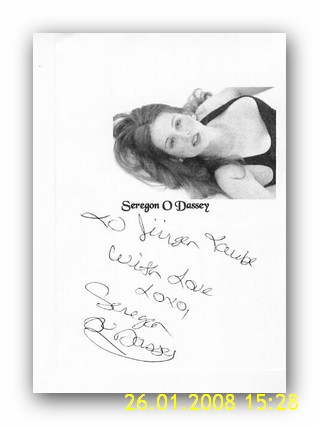 Seregon O Dassey
To Jürgen Taube
With Love
xoxo,
Seregon
O Dassey
26.01.2008 15:28